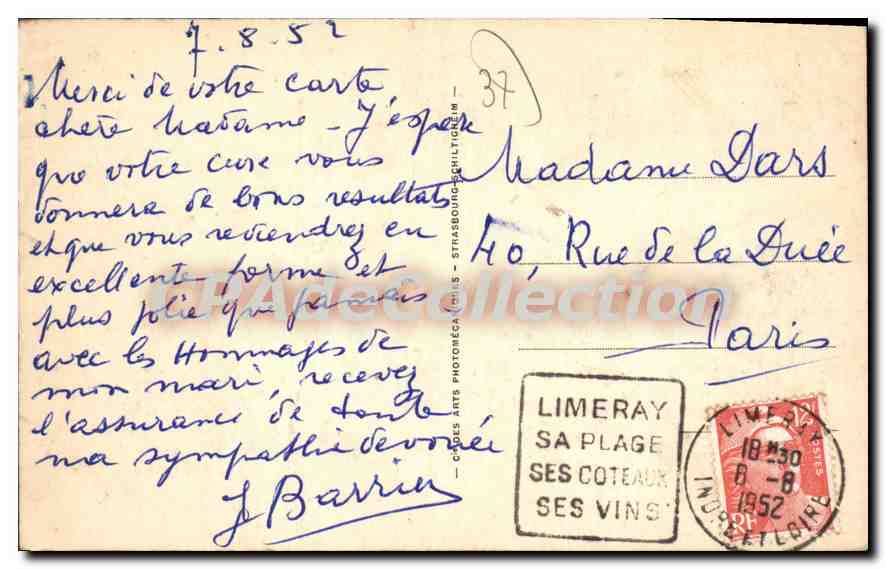 7.8.52
Merci de votre carte
chère Madame - J'espère
que votre cure vous
donnera de bons resultats
et que vous reviendrez en
excellente forme et
plus jolie que jamais
avec les Hommages de
mon mari, recevez
l'assurance de toute
ma sympathie devouée
J Barrier
37
Madame Dars
40, Rue de la Duée
Paris
STRASBOURG-SCHILTIGHEIM
CIE DES ARTS PHOTOMÉCANIQUES
CPAdeCollection
LIMERAY
SA PLAGE
SES COTEAUX
SES VINS
LIMERAY
18 H 30
8 -8
1952
INDRE ET LOIRE
POSTES
RF